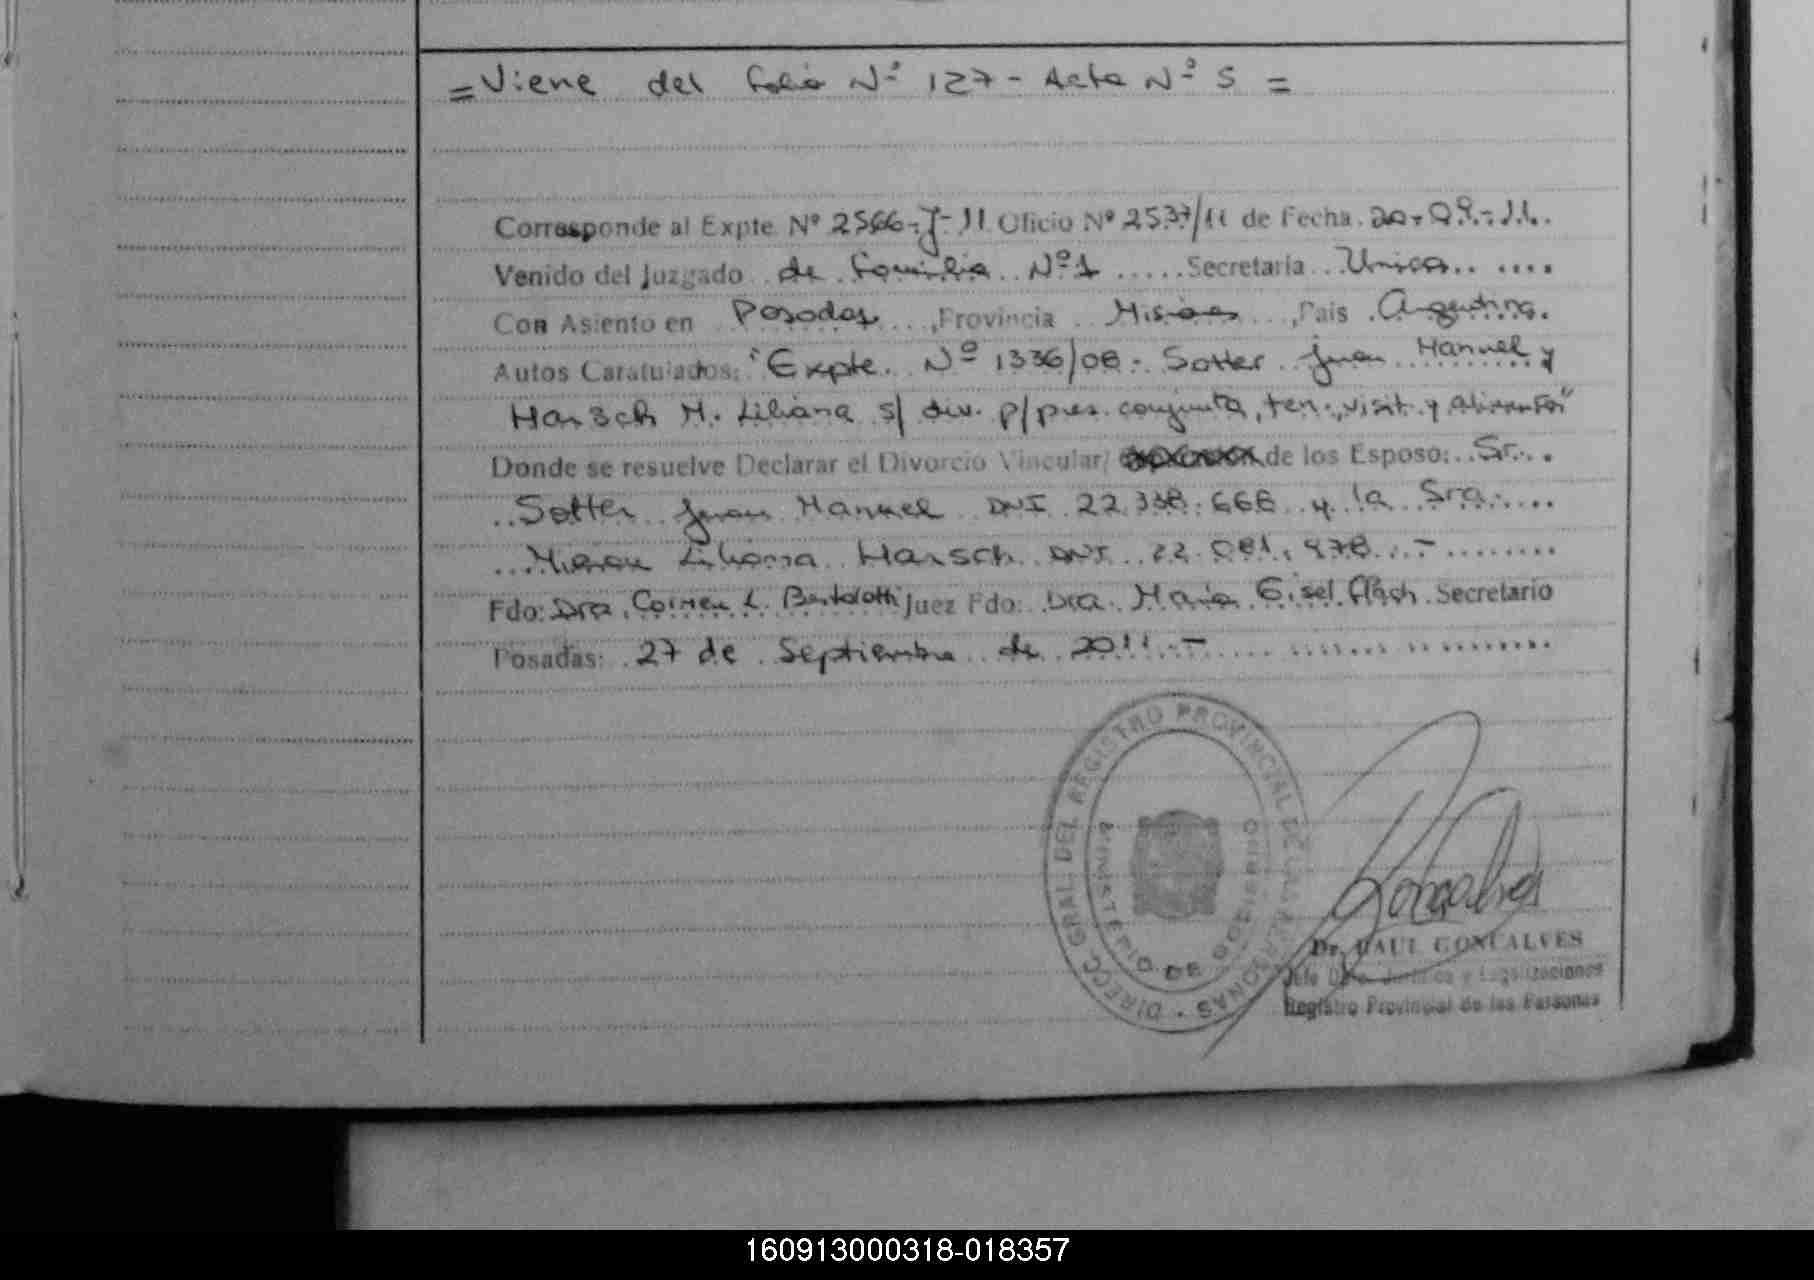 = Viene del folio Nº 127 - Acta Nº 5 =
Corresponde al Expte Nº 2566-J-11 Oficio Nº 2537/11 de Fecha 20-09-11.
Venido del Juzgado de Familia Nº 1 Secretaría Unica
Con Asiento en Posadas, Provincia Misiones, País Argentina.
Autos Caratulados: "Expte. Nº 1336/08 - Sotter Juan Manuel y
Harsch M. Liliana s/ div. p/ pres. conjunta, ten., visit. y alimentos"
Donde se resuelve Declarar el Divorcio Vincular/ de los Esposo: Sr.
Sotter Juan Manuel DNI 22.338.668 y la Sra.
Miriam Liliana Harsch DNI 22.081.978 -
Fdo: Dra. Carmen L. Bertolotti Juez Fdo: Dra. Maria Gisel Flach Secretario
Posadas: 27 de Septiembre de 2011.-
DIRECC. GRAL. DEL REGISTRO PROVINCIAL DE LAS PERSONAS
MINISTERIO DE GOBIERNO
Goncalves
Dr. RAUL GONCALVES
Jefe Dpto. Jurídica y Legalizaciones
Registro Provincial de las Personas
160913000318-018357